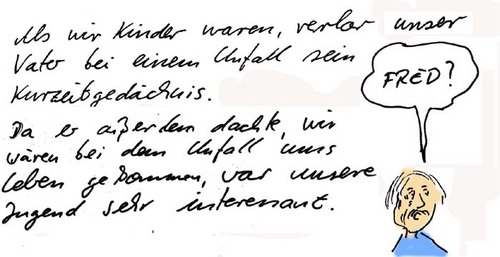 Als wir Kinder waren, verlor unser
Vater bei einem Unfall sein
Kurzeitgedächnis.
Da er außerdem dachte, wir
wären bei dem Unfall ums
Leben gekommen, war unsere
Jugend sehr interessant.
FRED?